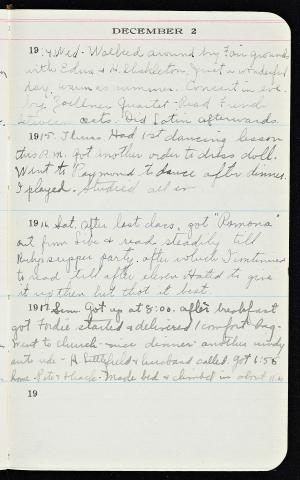 DECEMBER 2
1914 Wed. Walked around by Fair ground
with Edna & H. Shackleton. Just a wonderful
day, warm as summer. Concert in eve.
by Zoellner Quartet. Read French
between acts. Did Latin afterwards.
1915. Thurs. Had 1st dancing lesson
this A.M. Got another order to dress doll.
Went to Raymond to dance after dinner.
I played. Studied all ev
1916 Sat. After last class, got "Pomona"
out from Libe & read steadily till
Ruby's supper party, after which I continued
to read till after eleven. Hated to give
it up then but that is best.
1917 Sun. Got up at 8:00. After breakfast
got Fordie started & delivered 1 comfort bag.
Went to church - nice dinner - another windy
auto ride - H. Littlefield & husband called. Got 6:55
home. Made bed & climbed in about 11.
19